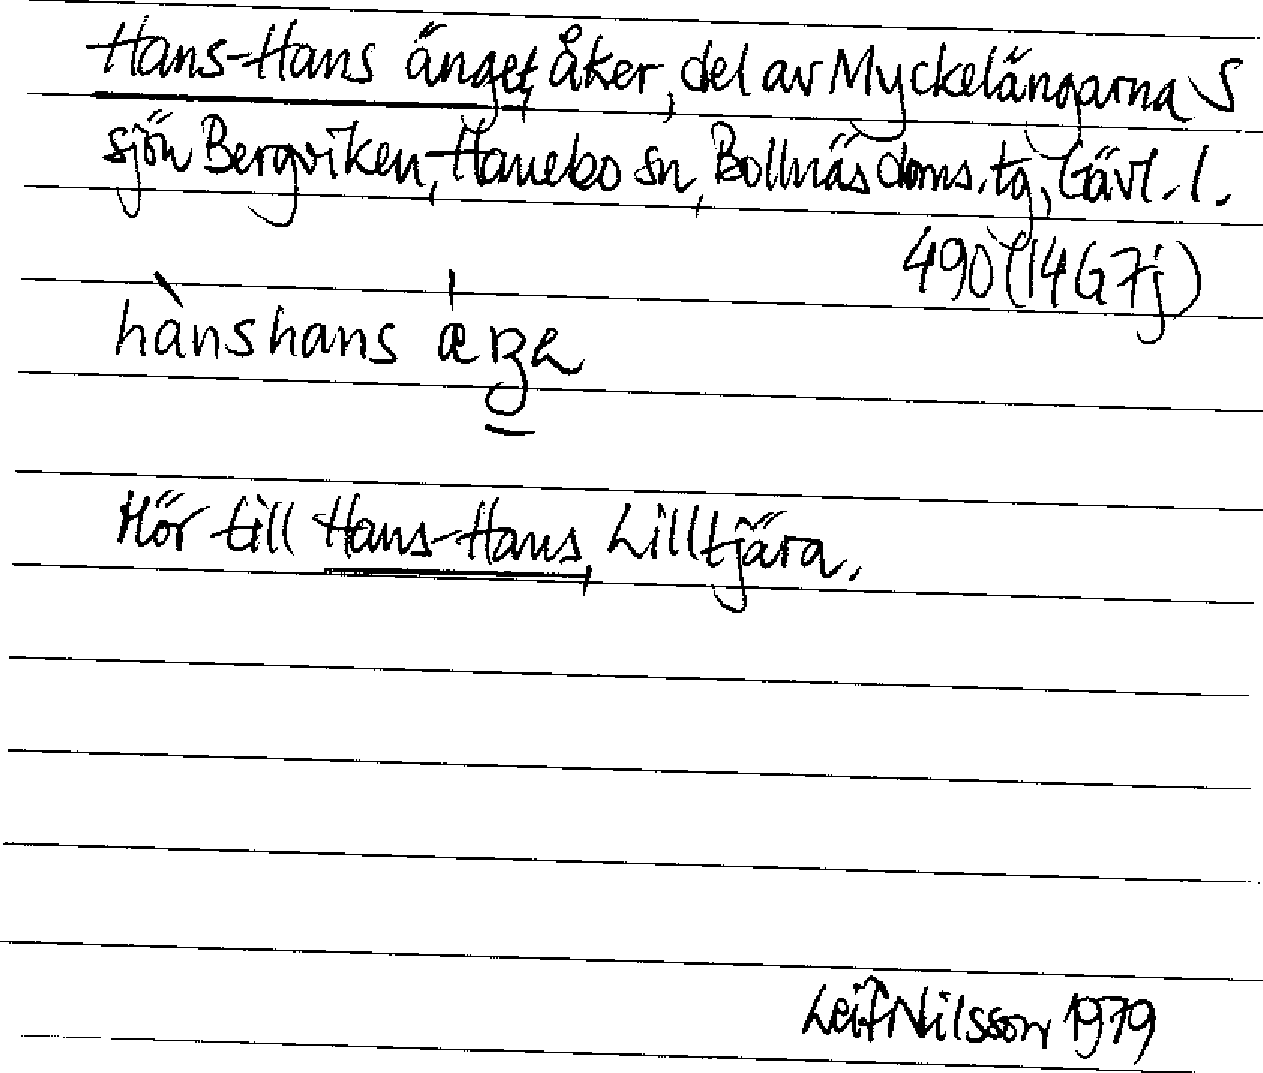 Hans-Hans änget, åker, del av Myckelängarna S
sjön Bergviken, Hanebo sn, Bollnäs doms.tg, Gävl. l.
490 (14G7j)
hànshans
Hör till Hans-Hans, Lilltjära.
Leif Nilsson 1979